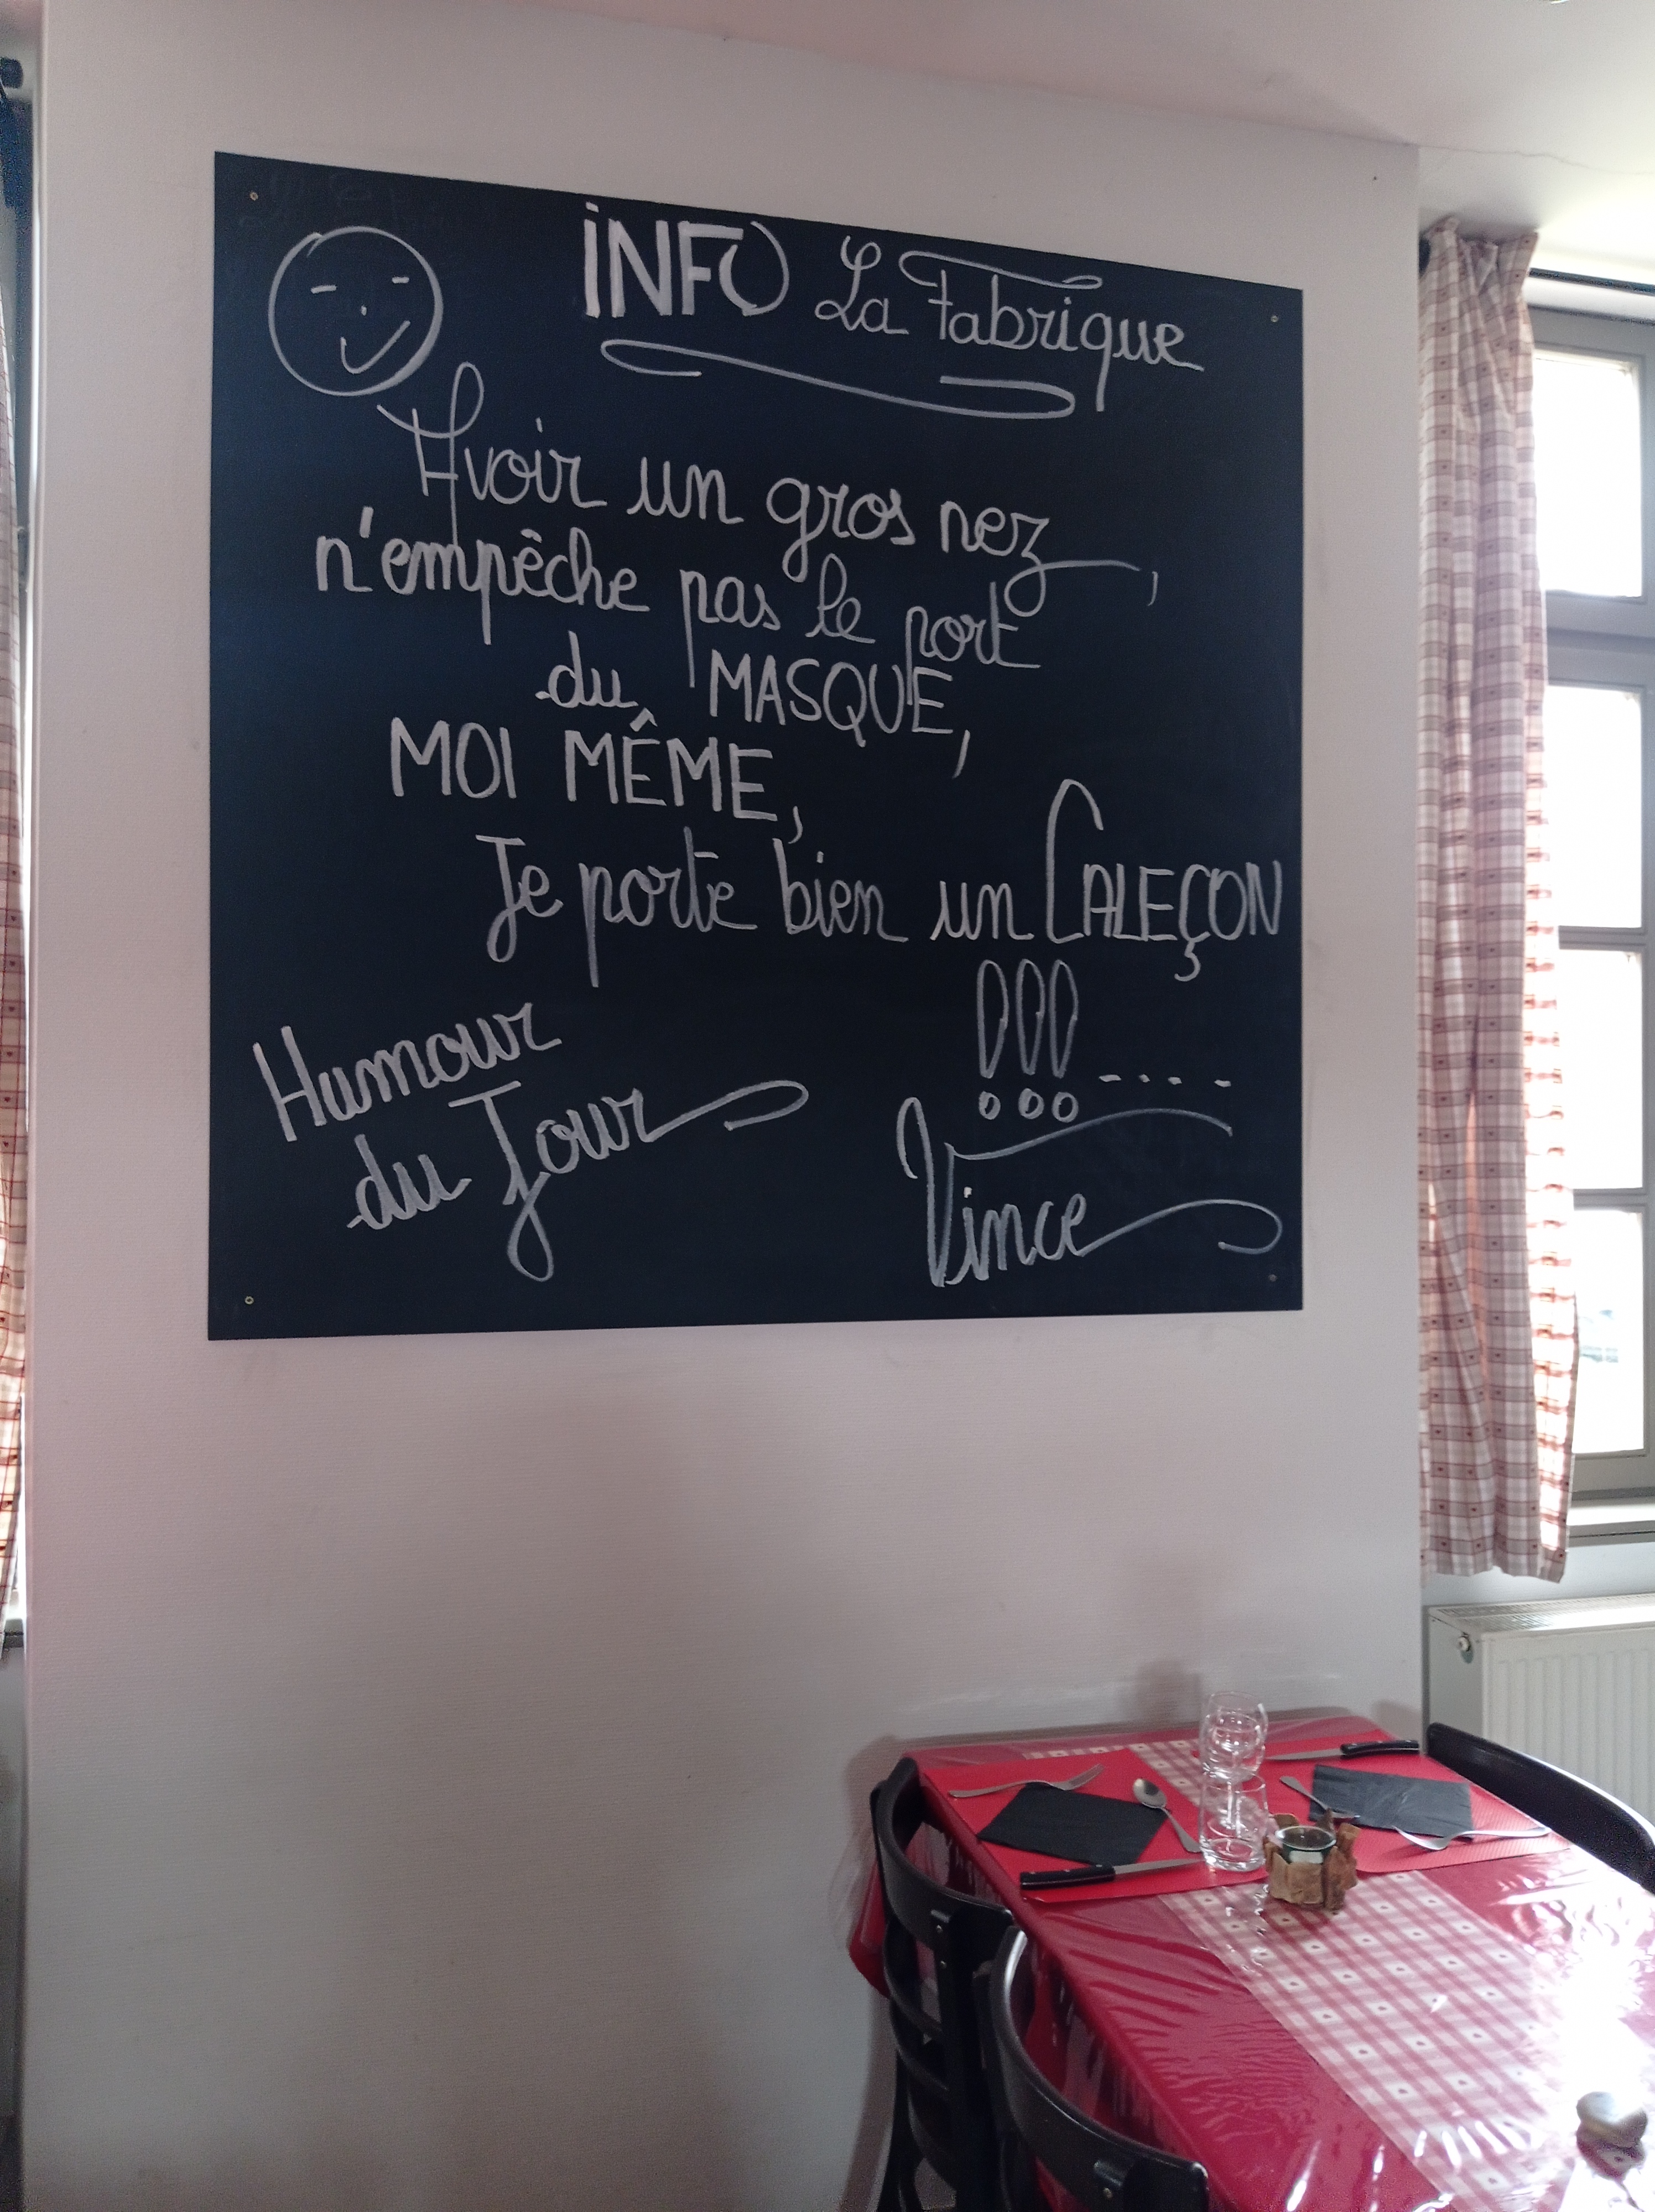 iNFO La Fabrique
Avoir un gros nez,
n'empêche pas le port
du MASQUE,
MOI MÊME,
Je porte bien un CALEÇON
!!! ....
Humour
du Jour
Vince